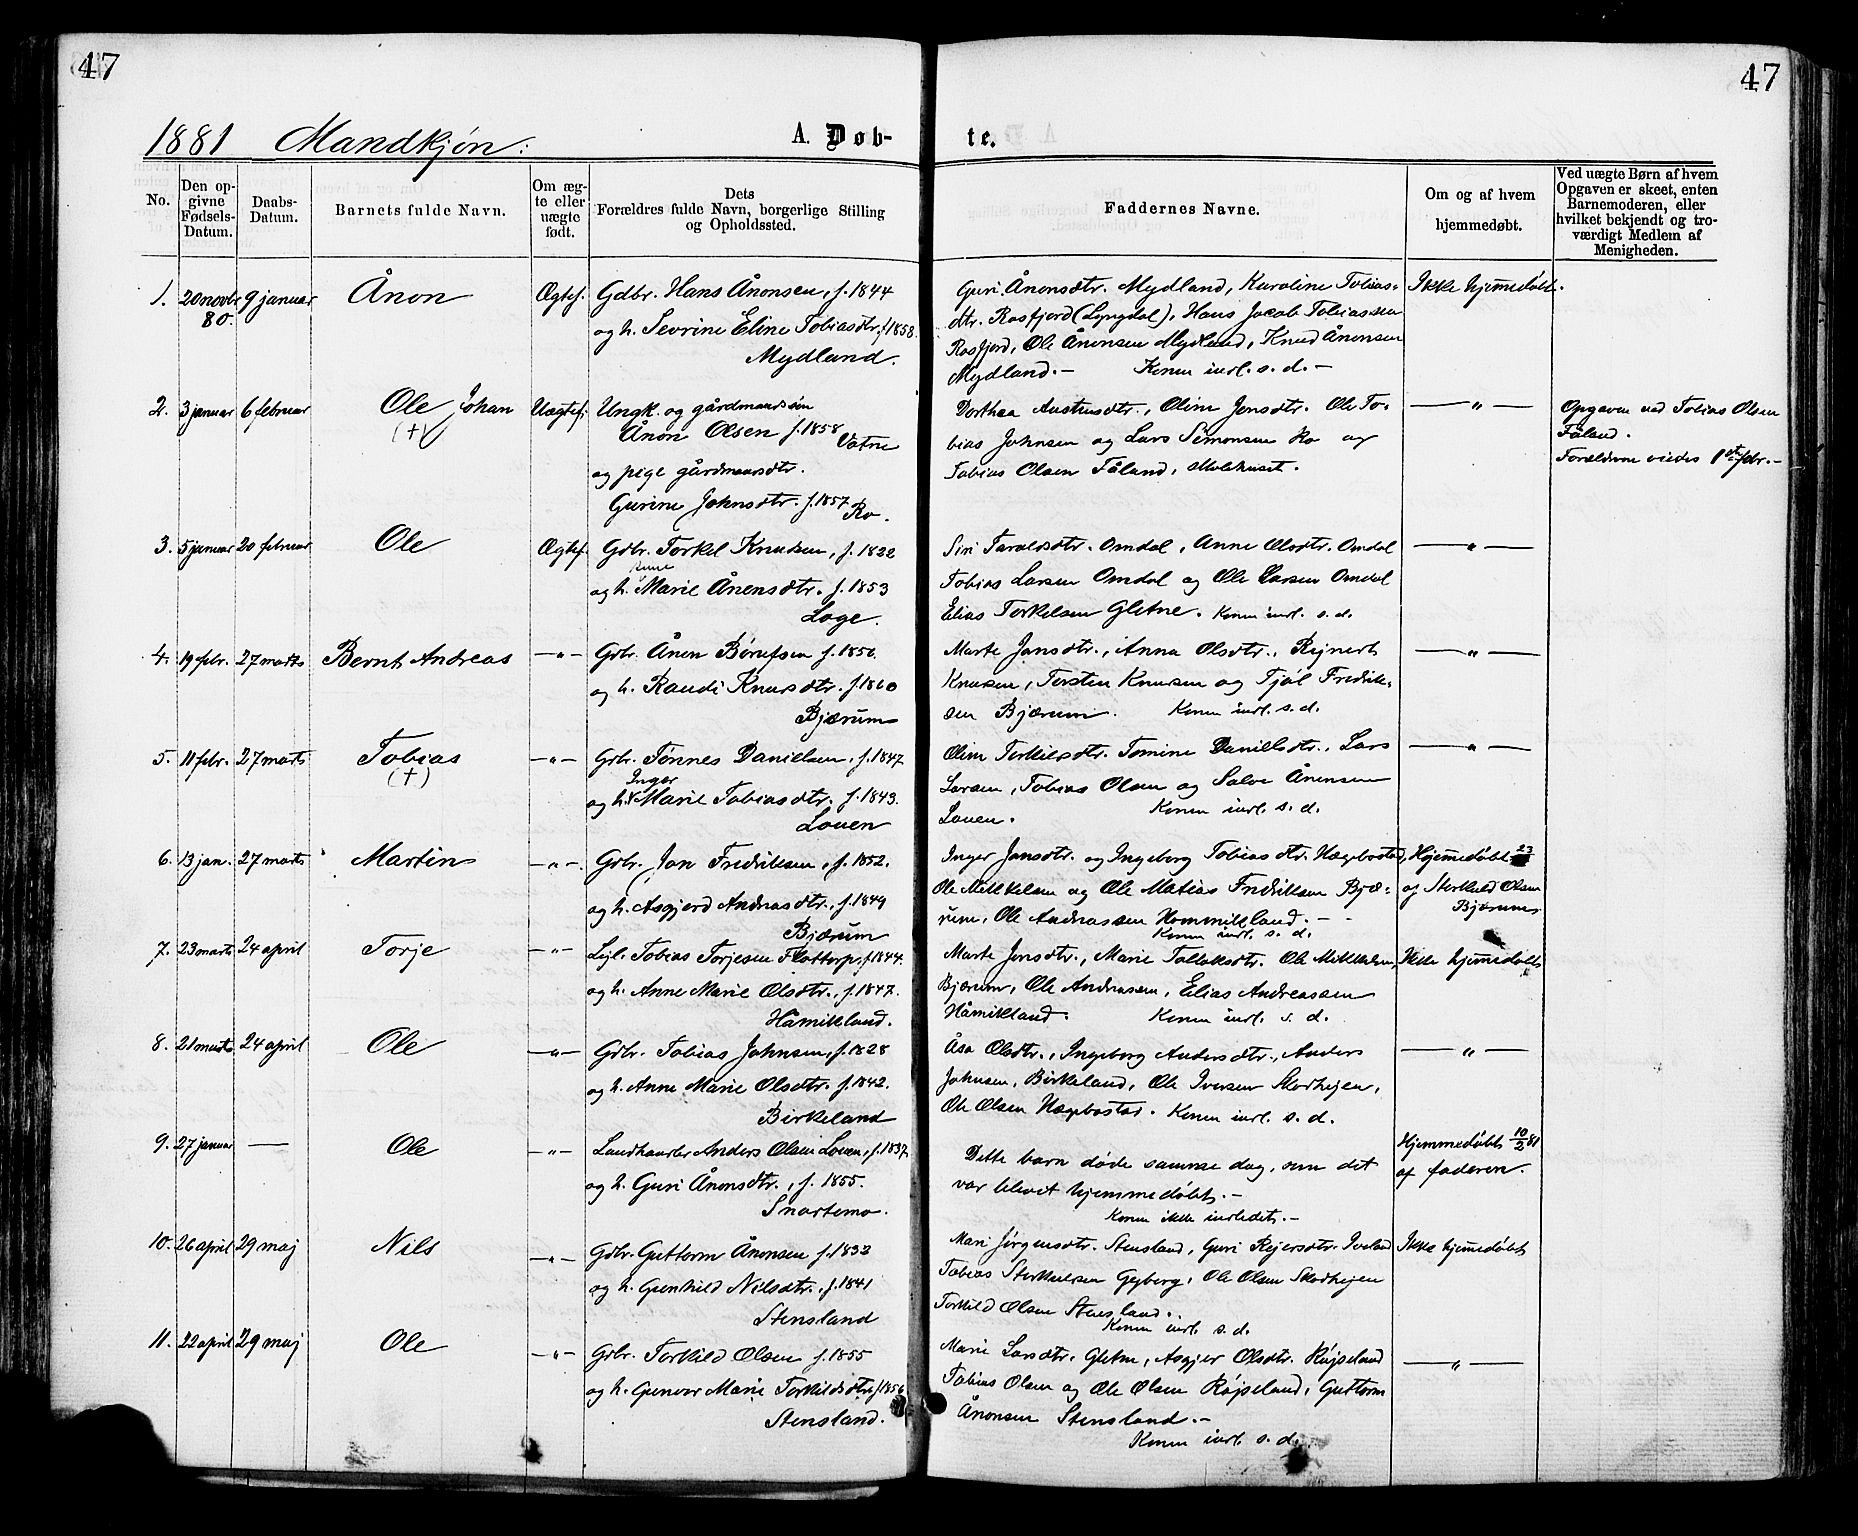 47
47
1881 Mandkjøn:
A. Døb-
te.
No.
Den op-
givne
Fødsels-
Datum.
Daabs-
Datum.
Barnets fulde Navn.
Om æg-
te eller
uægte
født.
Dets
Forældres fulde Navn, borgerlige Stilling
og Opholdssted.
Faddernes Navne.
Om og af hvem
hjemmedøbt.
Ved uægte Børn af hvem
Opgaven er skeet, enten
Barnemoderen, eller
hvilket bekjendt og tro-
værdigt Medlem af
Menigheden.
1. 20 novbr 80. 9 januar Ånon Ægtef.
Gdbr. Hans Ånonsen, f. 1844
og h. Sevrine Eline Tobiasdtr. f 1858.
Mydland.
Guri Ånonsdtr. Mydland, Karoline Tobias-
dtr. Rosfjord (Lyngdal), Hans Jacob Tobiassen
Rosfjord, Ole Ånonsen Mydland, Knud Ånonsen
Mydland. – Konen indl. s. d. –
Ikke hjemmedøbt.
2. 3 januar 6 februar Ole Johan (+) Uægtef.
Ungk. og gårdmandssøn
Ånon Olsen f. 1858
Vatne
og pige gårdmandsdtr.
Gurine Johnsdtr. f. 1857
Ro.
Dorthea Oline Jensdtr. Ole To-
bias Johnsen og Lars Simonsen Ro og
Tobias Olsen Fåland,
– " –
Opgaven ved Tobias Olsen
Fåland.
Forældrene viedes 1ste febr. –
3. 5 januar 20 februar Ole Ægtef.
Gdbr. Torkel Knudsen, f. 1822
og h. Marie Ånensdtr. f. 1853
Loge.
Siri Taraldsdtr. Omdal, Anne Olsdtr. Omdal
Tobias Larsen Omdal og Ole Larsen Omdal
Elias Torkelsen Gletne. Konen indl. s. d.
– " –
4. 19 febr. 27 marts Bernt Andreas – " –
Gdbr. Ånen Børufsen f. 1850.
og h. Randi Knudsdtr. f. 1860
Bjærum
Marte Jonsdtr., Anna Olsdtr., Rejnert
Knudsen, Torsten Knudsen og Tjøl Fredrik-
sen Bjærum. Konen indl. s. d.
– " –
5. 11 febr. 27 marts Tobias (+) – " –
Gdbr. Tønnes Danielsen, f. 1847
Inger
og h. Marie Tobiasdtr. f. 1843.
Louen
Oline Torkelsdtr. Tomine Danielsdtr., Lars
Larsen, Tobias Olsen og Salve Ånensen
Louen. Konen indl. s. d.
– " –
6. 13 jan. 27 marts Martin – " –
Gdbr. Jon Fredriksen, f. 1852.
og h. Asgjerd Andreasdtr., f. 1849
Bjærum
Inger Jonsdtr. og Ingeborg Tobiasdtr. Hægebostad,
Ole Mikkelsen og Ole Matias Fredriksen Bjæ-
rum, Ole Andreassen Hommikland. –
Konen indl. s. d.
Hjemmedøbt
af Olsen
Bjærum
7. 23 marts 24 april Torje – " –
Lejl. Tobias Torjesen Flottorp, f. 1844.
og h. Anne Marie Olsdtr., f. 1847.
Håmikland.
Marte Jonsdtr., Marie Tollaksdtr. Ole Mikkelsen,
Bjærum, Ole Andreassen, Elias Andreassen
Håmikland. Konen indl. s. d.
Ikke hjemmedøbt
8. 21 marts 24 april Ole – " –
Gdbr. Tobias Johnsen, f. 1828
og h. Anne Marie Olsdtr. f. 1842.
Birkeland
Åsa Olsdtr., Ingeborg Andersdtr., Anders
Johnsen, Birkeland, Ole Iversen Skodhejen,
Ole Olsen Hægebostad. Konen indl. s. d.
– " –
9. 27 januar – Ole – " –
Landhandler Anders Olsen Louen, f. 1837
og h. Guri Ånonsdtr., f. 1855.
Snartemo.
Dette barn døde samme dag, som det
var blevet hjemmedøbt. –
Konen ikke indledet. –
Hjemmedøbt 10/2 81
af faderen.
10. 26 april 29 maj Nils – " –
Gdbr. Guttorm Ånonsen f. 1832
og h. Gunhild Nilsdtr., f. 1841
Stensland
Mari Jørgensdtr. Stensland, Guri Rejersdtr. Iveland
Tobias Gyberg, Ole Olsen Skodhejen
Torkild Olsen Stensland.
Konen indl. s. d.
Ikke hjemmedøbt
11. 22 april 29 maj Ole – " –
Gdbr. Torkild Olsen f. 1855
og h. Gunvor Marie Torkildsdtr. f 1856
Stensland.
Marie Larsdtr. Gletne, Asgjer Olsdtr. Røjseland
Tobias Olsen og Ole Olsen Røjseland, Guttorm
Ånonsen Stensland. –
Konen indl. s. d.
– " –